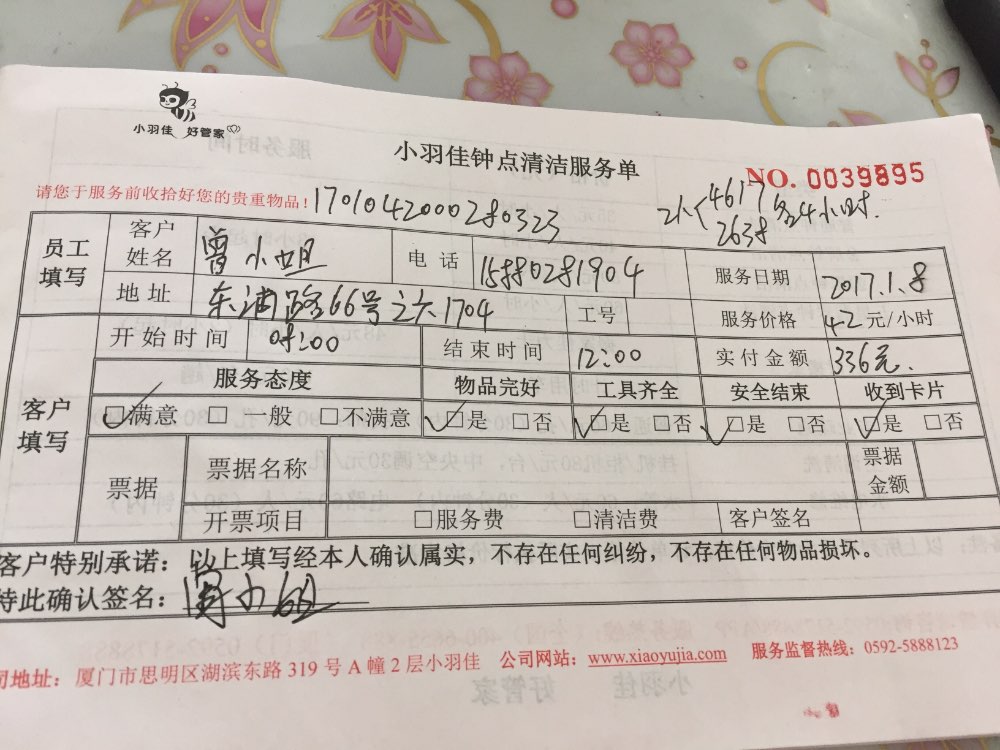 小羽佳 好管家
小羽佳钟点清洁服务单
NO. 0039895
请您于服务前收拾好您的贵重物品！170104200028 0323
2人 4617 2638 各4小时.
员工填写 客户姓名 曾小姐 电话 15880281904 服务日期 2017.1.8
地址 东浦路66号之六1704 工号 服务价格 42元/小时
客户填写 开始时间 08:00 结束时间 12:00 实付金额 336元.
服务态度 物品完好 工具齐全 安全结束 收到卡片
☑满意 □一般 □不满意 ☑是 □否 ☑是 □否 ☑是 □否 ☑是 □否
票据 票据名称 票据金额
开票项目 □服务费 □清洁费 客户签名
客户特别承诺：以上填写经本人确认属实，不存在任何纠纷，不存在任何物品损坏。
特此确认签名：曾小姐
司地址：厦门市思明区湖滨东路 319 号 A 幢 2 层小羽佳 公司网站：www.xiaoyujia.com 服务监督热线：0592-5888123